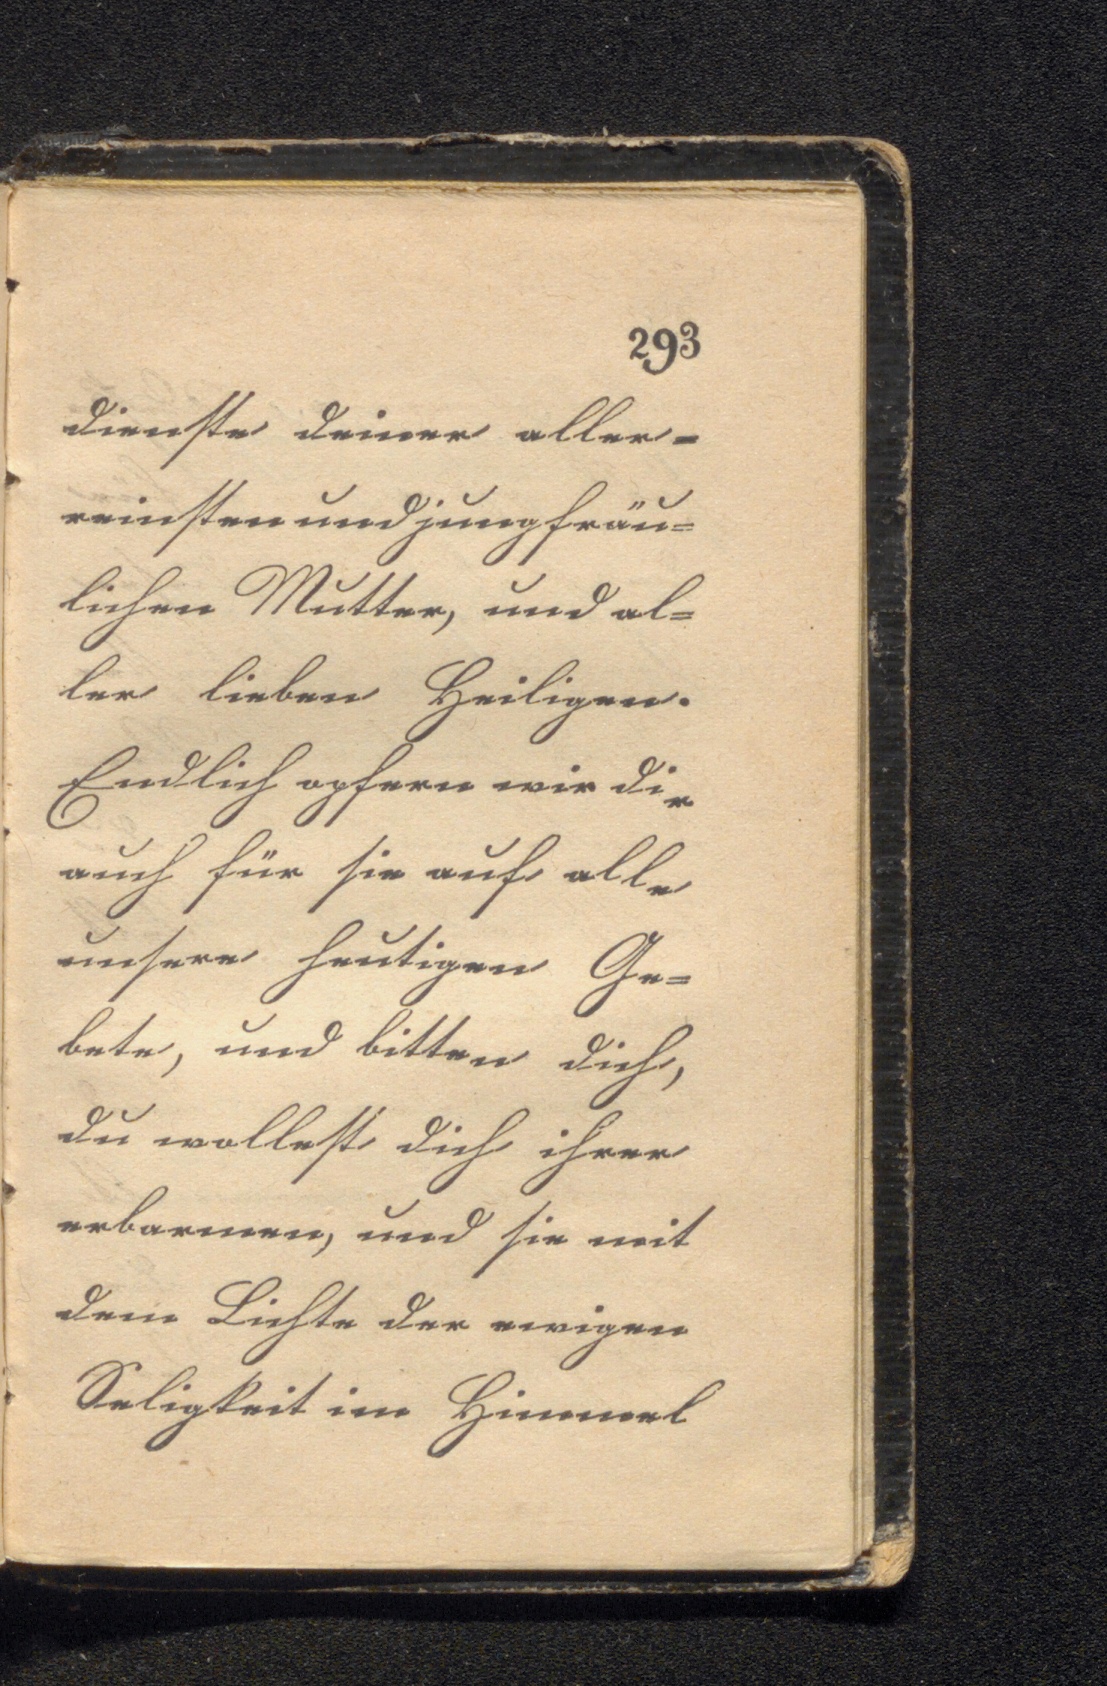 293
dienste deiner aller-
reinsten und jungfräu=
lichen Mutter, und al=
ler lieben Heiligen.
Endlich opfern wir dir
auch für sie auf alle
unsere heutigen Ge=
bete, und bitten dich,
du wollest dich ihrer
erbarmen, und sie mit
dem Lichte der ewigen
Seligkeit im Himmel